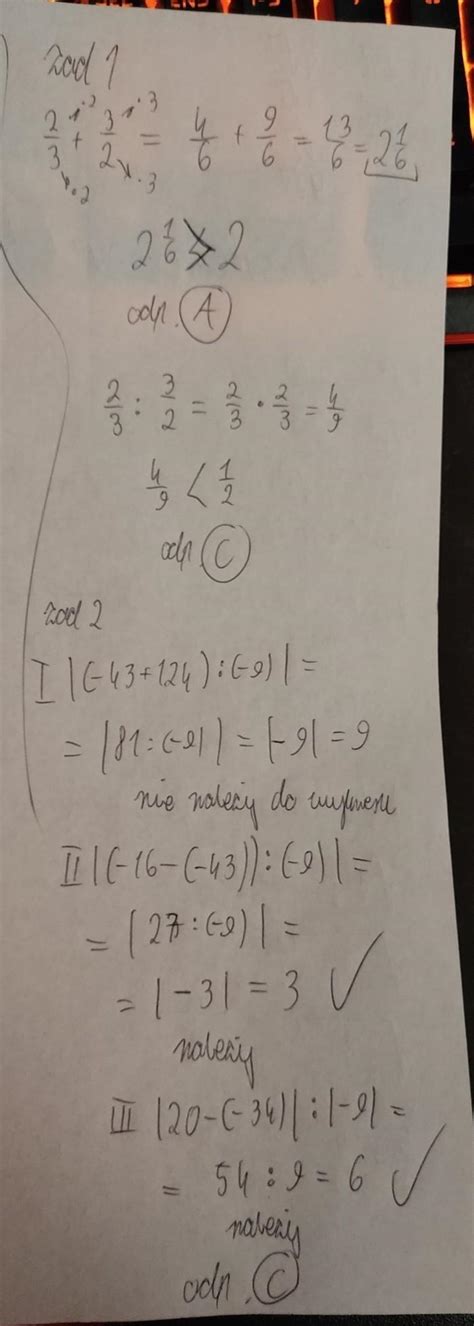 zad 1
2/3 + 3/2 = 4/6 + 9/6 = 13/6 = 2 1/6
2 1/6 > 2
odp. A
2/3 : 3/2 = 2/3 · 2/3 = 4/9
4/9 < 1/2
odp. C
zad 2
I |(-43+124):(-9)| =
= |81:(-9)| = |-9| = 9
nie należy do
II |(-16-(-43)):(-9)| =
= |27:(-9)| =
= |-3| = 3 ✓
należy
III |20-(-34)|:|-9| =
= 54 : 9 = 6 ✓
należy
odp. C